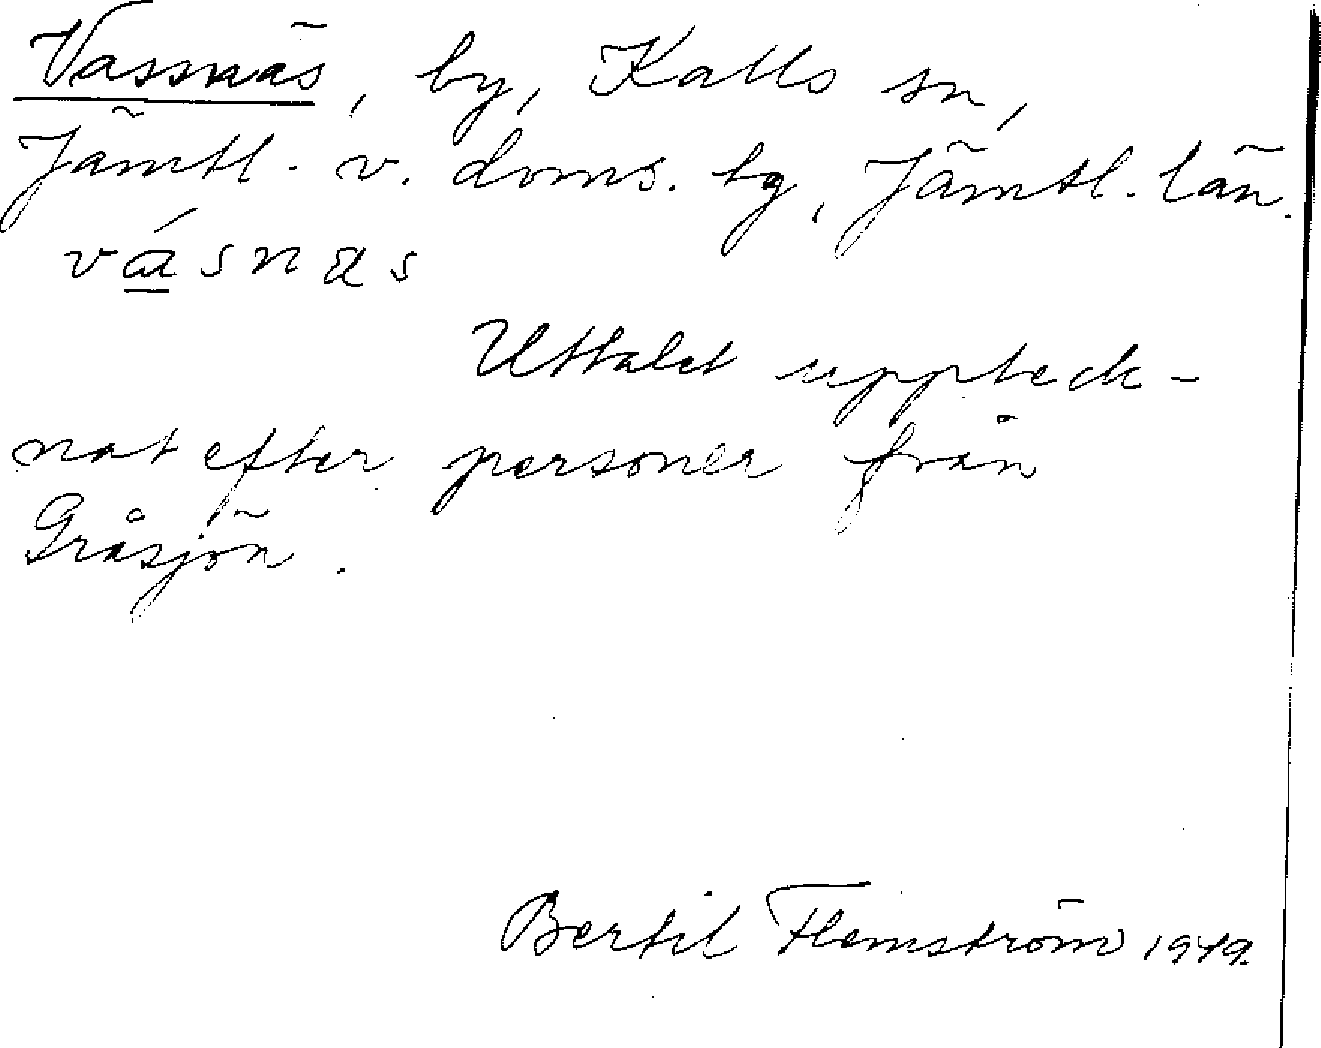 Vassnäs, by, Kalls sn,
Jämtl. v. doms. tg, Jämtl. län.
vásnas
Uttalet uppteck-
nat efter personer från
Gråsjön.
Bertil Flemström 1949.